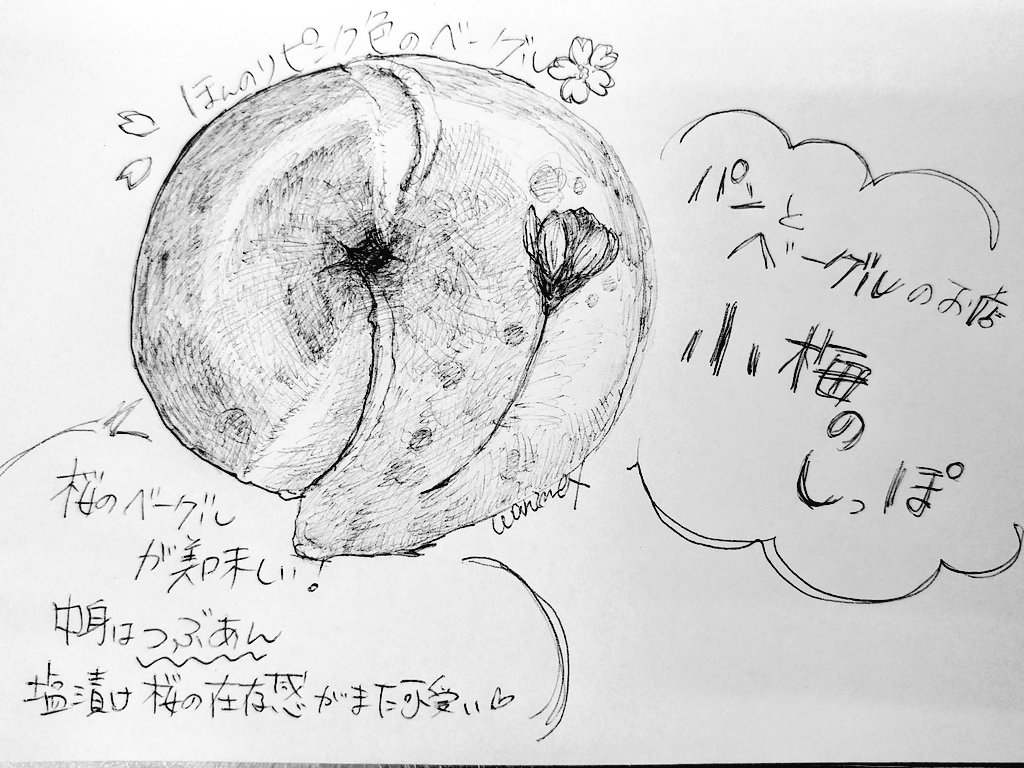 ほんのりピンク色のベーグル
パンと
ベーグルのお店
小梅
の
しっぽ
桜のベーグル
が美味しい!
中身はつぶあん
塩漬け桜の存在感がまた可愛い♡